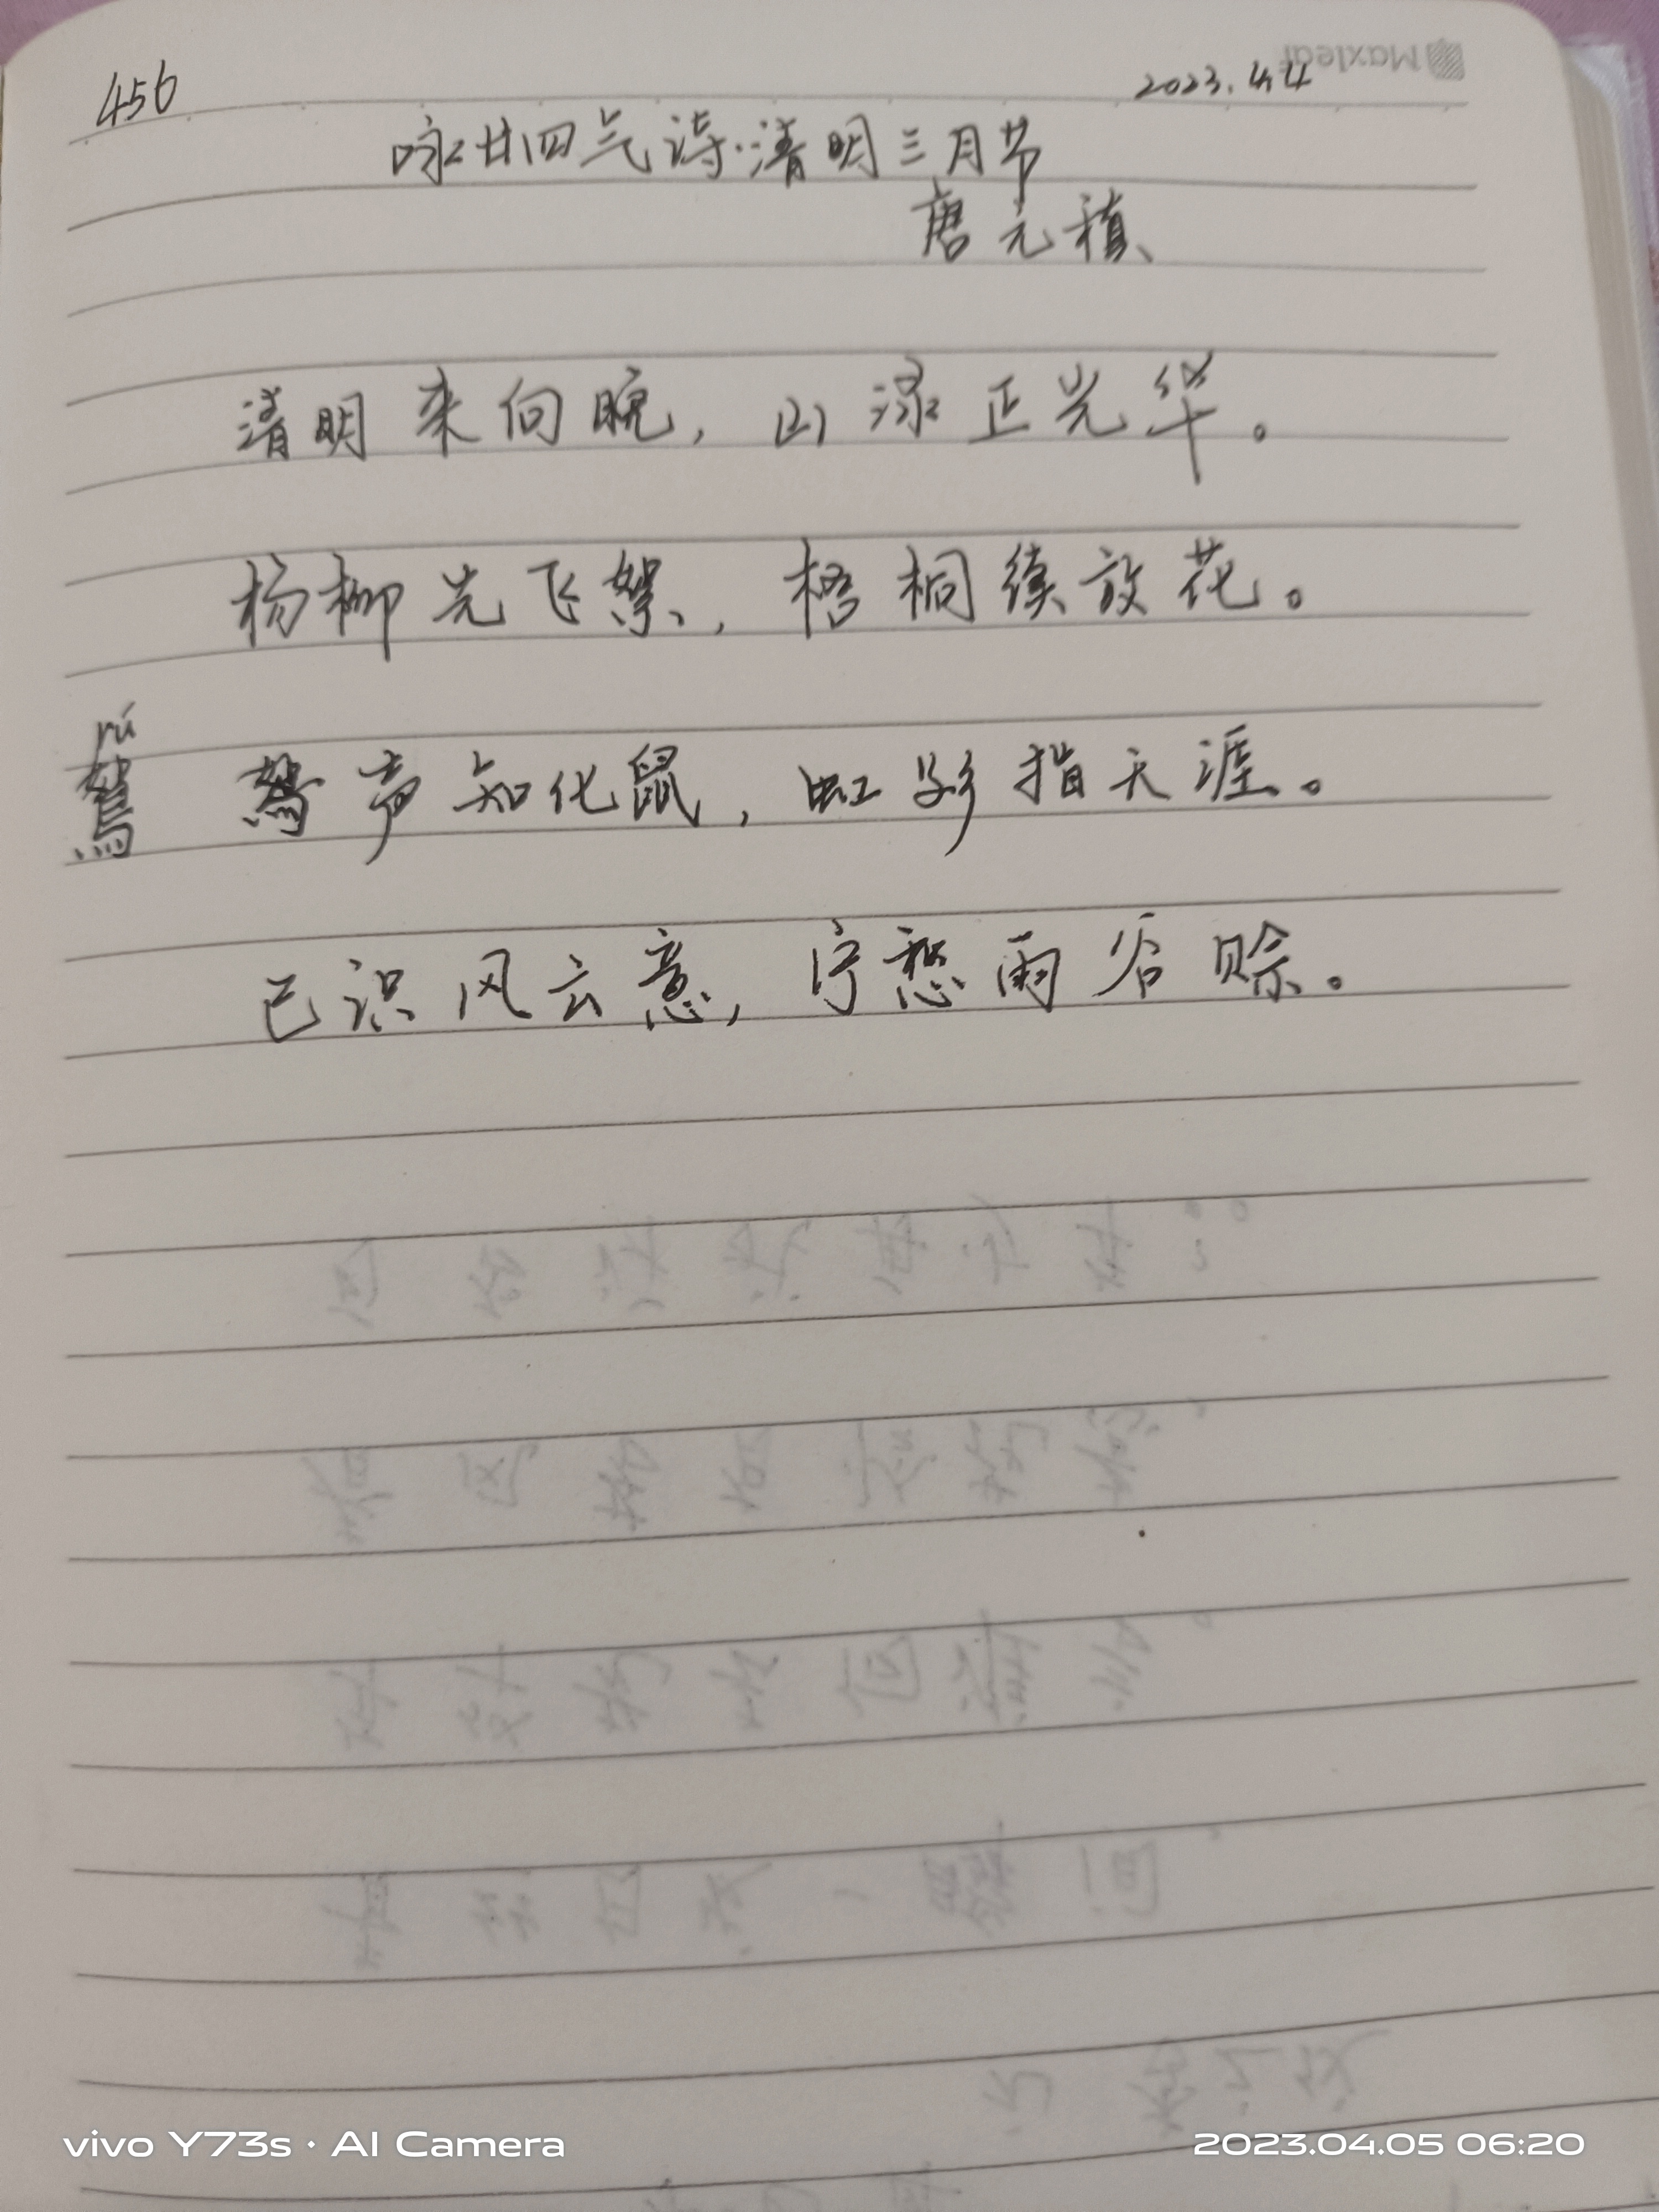 456
2023.4.4
Maxleaf
咏廿四气诗·清明三月节
唐 元稹
清明来向晚,山渌正光华。
杨柳先飞絮,梧桐续放花。
rú
鴽
鴽声知化鼠,虹影指天涯。
已识风云意,宁愁雨谷赊。
vivo Y73s · AI Camera
2023.04.05 06:20